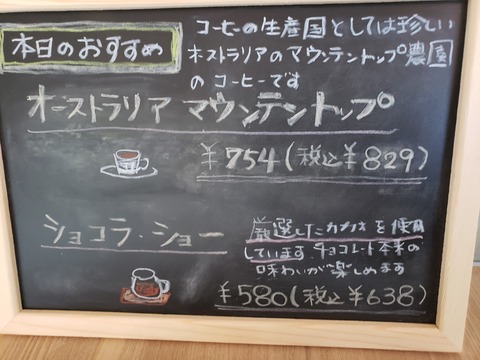 本日のおすすめ
コーヒーの生産国としては珍しい
オーストラリアのマウンテントップ農園
のコーヒーです
オーストラリア マウンテントップ
¥754(税込¥829)
ショコラ・ショー
厳選したカカオを使用
しています チョコレート本来の
味わいが楽しめます
¥580(税込¥638)